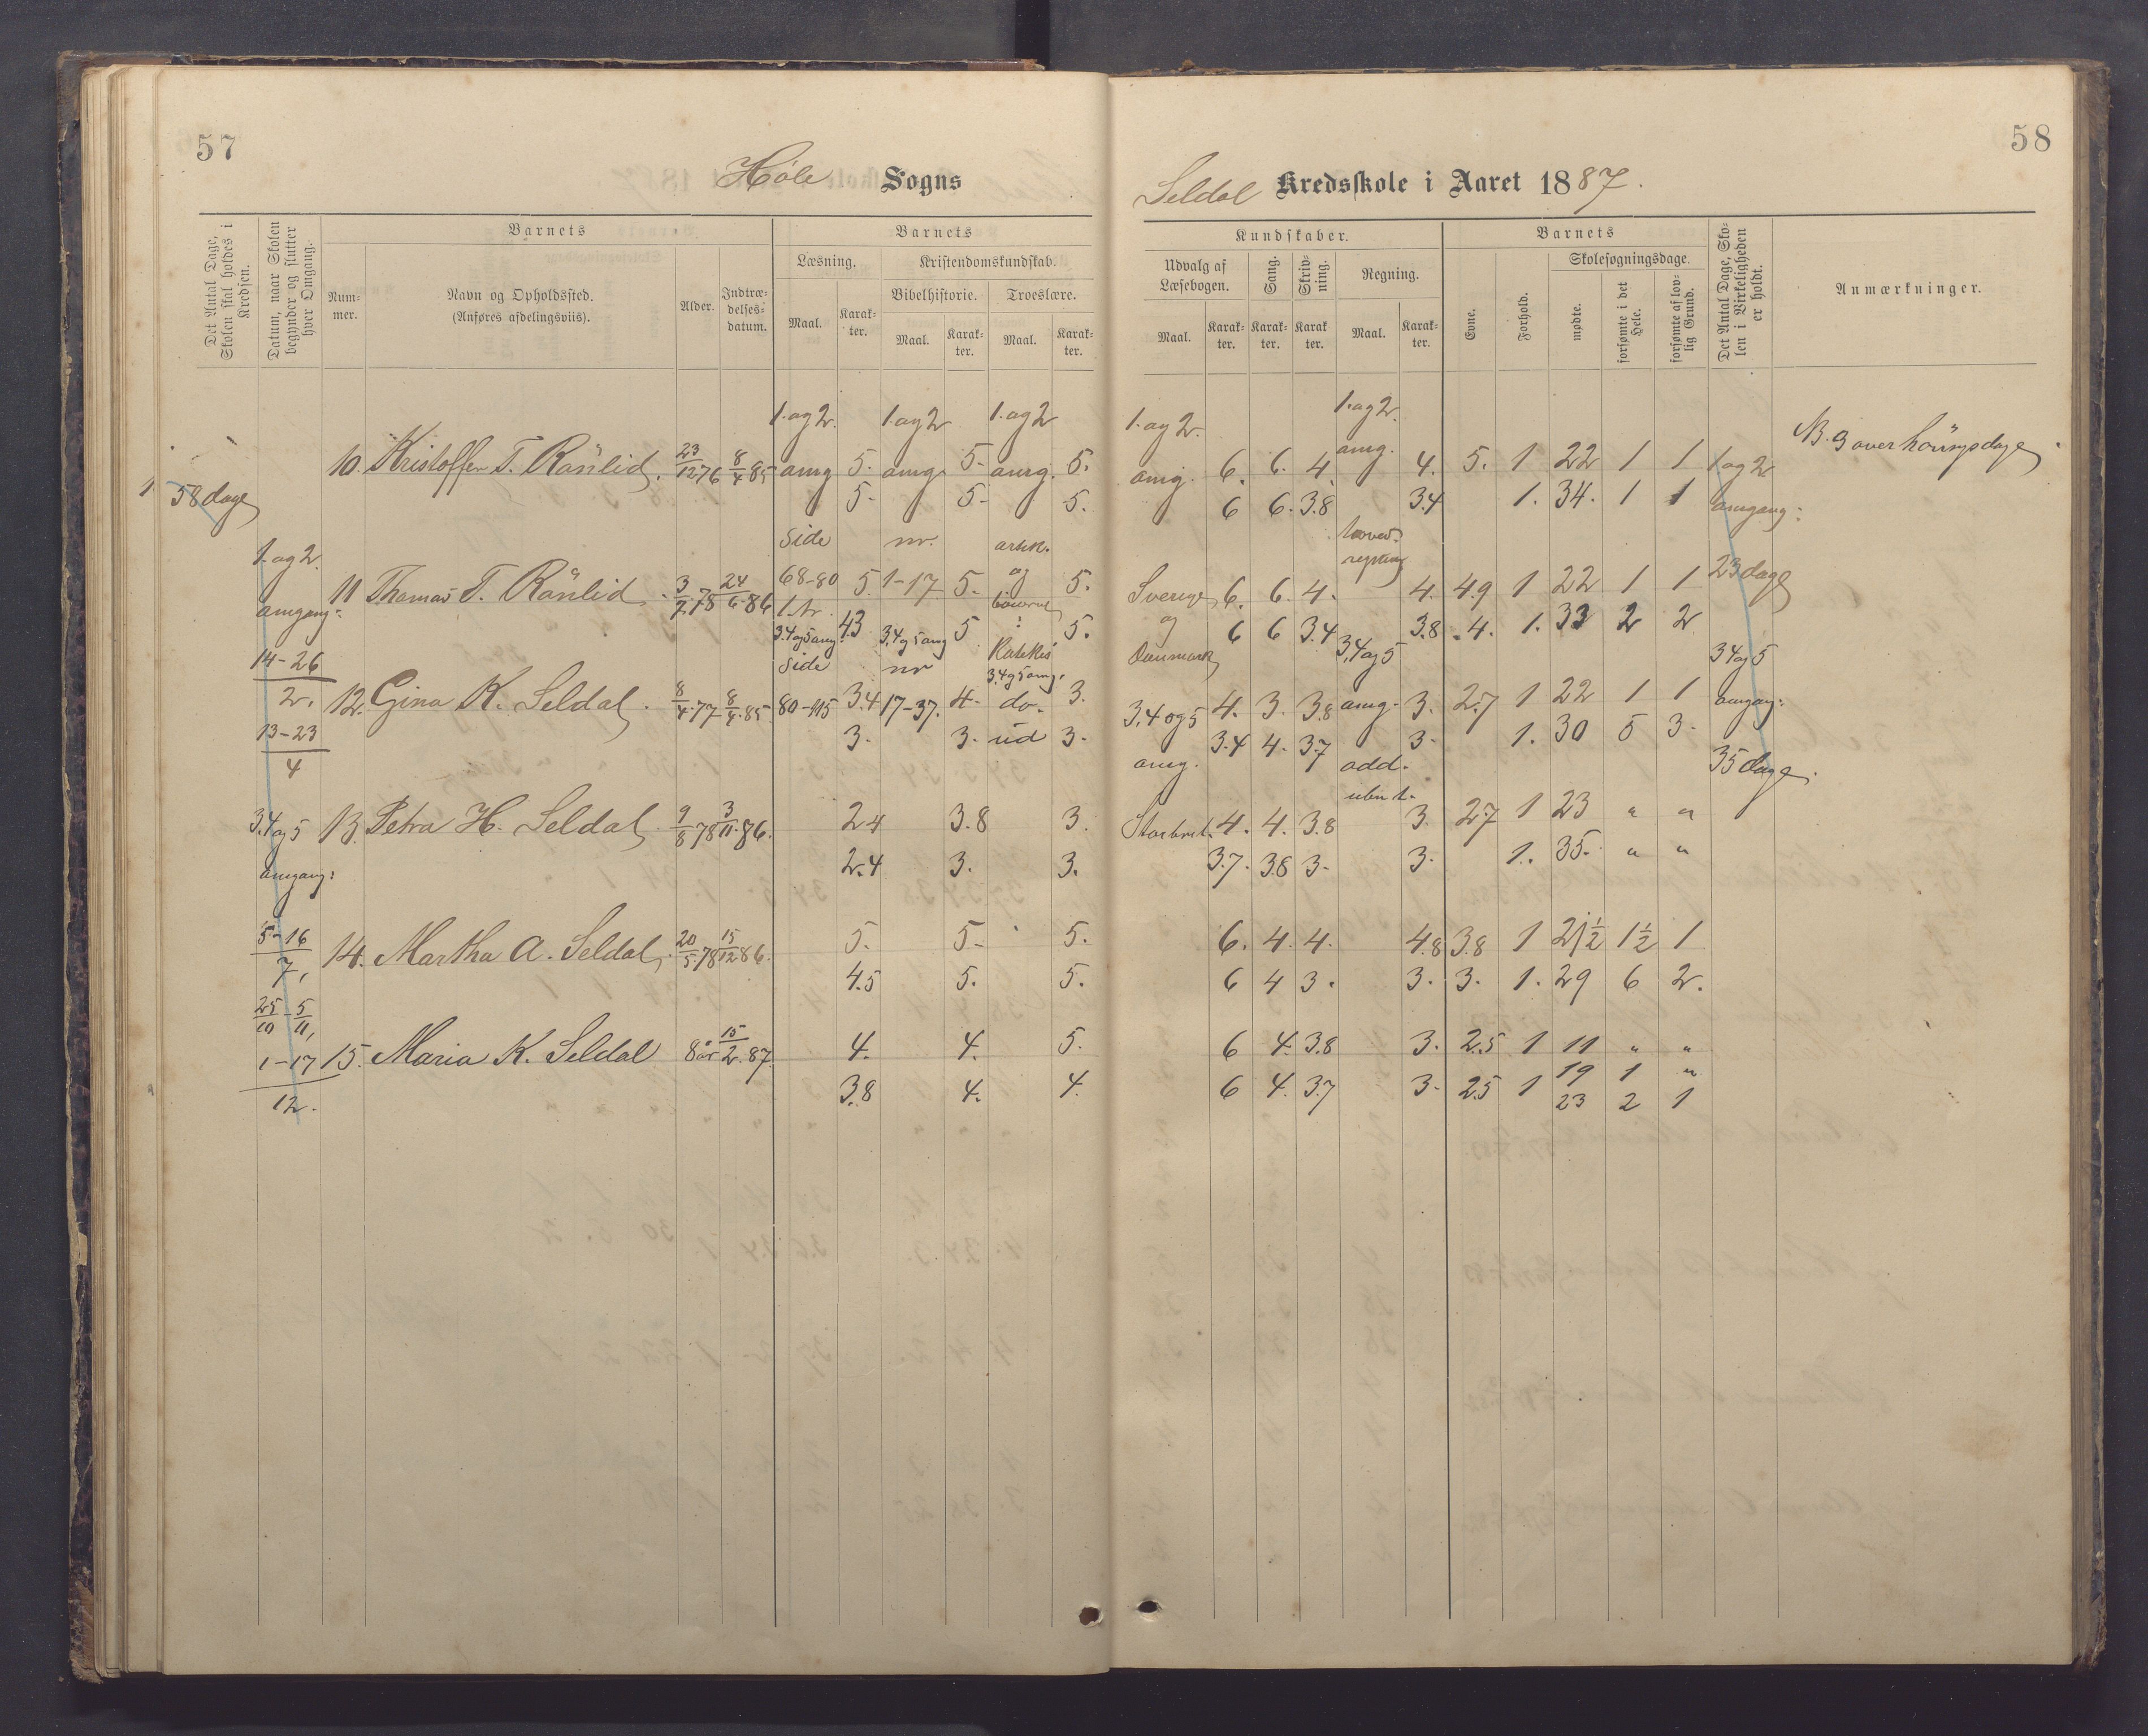 57
Høle Sogns
Det Antal Dage, Skolen skal holdes i Kredsen.
Datum, naar Skolen begynder og slutter hver Omgang.
Barnets
Num-
mer.
Navn og Opholdssted.
(Anføres afdelingsviis).
Alder.
Indtræ-
delses-
datum.
Barnets
Læsning.
Maal.
Karak-
ter.
Kristendomskundskab.
Bibelhistorie.
Troeslære.
Maal.
Karak-
ter.
Maal.
Karak-
ter.
1. og 2. 1. og 2 1. og 2
10. Kristoffer T. Rånlid. 23/12 76 8/4 85 omg 5. omg. 5. omg. 5.
58 dage 5. 5. 5.
1. og 2. side nr.
omgang: 11 Thomas T. Rånlid. 3/7. 78 24/6. 86 68-80 5. 1-17 5. og 5.
4.3 3.4 og 5 omg 5 5.
14-26/2. side nr 3.4 og 5 omg.
12. Gina K. Seldal. 8/4. 77 8/4. 85 80-115 3.4 17-37. 4. do. 3.
13-23/4 3. 3. ud 3.
3.4 og 5 13. Petra H. Seldal. 9/8 78 3/11. 86. 2.4 3.8 3.
omgang: 2.4 3. 3.
5-16/7, 14. Martha A. Seldal. 20/5. 78 15/12 86. 5. 5. 5.
4.5 5. 5.
25/10 - 5/11,
1-17/12. 15. Maria K. Seldal 8 år 15/2. 87. 4. 4. 5.
3.8 4. 4.
58
Seldal Kredsskole i Aaret 1887.
Kundskaber.
Udvalg af
Læsebogen.
Maal.
Karak-
ter.
Sang.
Karak-
ter.
Skriv-
ning.
Karak
ter.
Regning.
Maal.
Karak-
ter.
Barnets
Evne.
Forhold.
Skolesøgningsdage.
mødte.
forsømte i det Hele.
forsømte af lov-
lig Grund.
Det Antal Dage, Sko-
len i Virkeligheden
er holdt.
Anmærkninger.
1. og 2. 1. og 2.
omg. 6. 6. 4. omg. 4. 5. 1 22 1 1 1. og 2
6 6. 3.8 3.4 1. 34. 1 1 omgang:
Sverige 6. 6. 4. 4. 4.9 1 22 1 1 23 dage
og 6 6 3.4 3.8 4. 1. 33 2 2
Danmark 3,4 og 5 3 4 og 5
3,4 og 5 4. 3. 3.8 omg. 3. 2.7 1 22 1 1 omgang:
omg. 3.4 4. 3.7 3. 1. 30 5 3.
add. 35 dage.
4. 4. 3.8 3. 2.7 1 23 " "
3.7. 3.8 3. 3. 1. 35. " "
6. 4. 4. 4.8 3.8 1 21 1/2 1 1/2 1
6 4 3. 3. 3. 1. 29 6 2.
6 4. 3.8 3. 2.5 1 11 " "
19 1 "
6 4. 3.7 3. 2.5 1 23 2 1